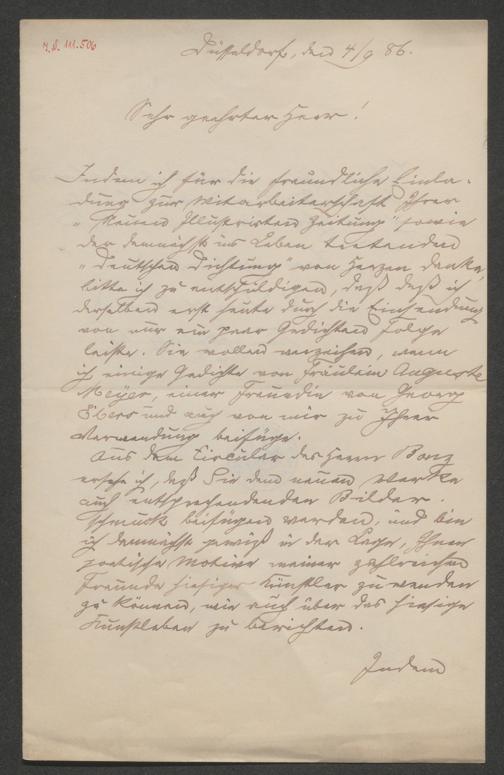 J.N. 111.506
Düsseldorf, den 4/9 86.
Sehr geehrter Herr!
Indem ich für die freundliche Einla-
dung zur Mitarbeiterschaft Ihrer
„Neuen Illustrirten Zeitung" sowie
der demnächst ins Leben tretenden
„Deutschen Dichtung" von Herzen danke,
bitte ich zu entschuldigen, daß daß ich
derselben erst heute durch die Einsendung
von nur ein paar Gedichten Folge
leiste. Sie wollen verzeihen, wenn
ich einige Gedichte von Fräulein Auguste
Meyer, einer Freundin von Georg
Ebers und auch von mir zu Ihrer
Verwendung beifüge.
Aus dem Circular des Herrn Bonz
ersehe ich, daß Sie dem neuen Werke
auch entsprechenden Bilder-
schmuck beifügen werden, und bin
ich demnächst gewiß in der Lage, Ihnen
poetische Motive meiner zahlreichen
Freunde hiesiger Künstler zuwenden
zu können, wie auch über das hiesige
Kunstleben zu berichten.
Indem